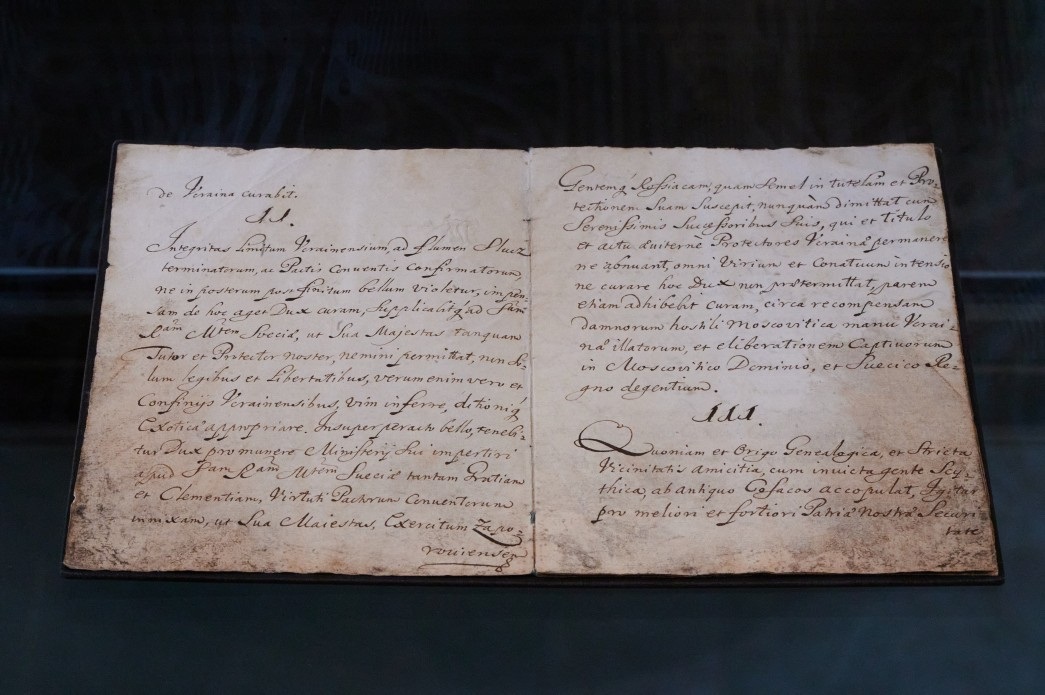 de Vcraina curabit.
II.
Integritas Limitum Vcrainensium, ad flumen Slucz
terminatorum, ac Pactis Conventis Confirmatorum,
ne in posterum post finitum bellum violetur, impen-
sam de hoc aget Dux curam, Supplicabitq; ad Sãm
Rãm Mtem Sueciæ, ut Sua Majestas tanquam
Tutor et Protector Noster, nemini permittat, non so-
lum legibus et Libertatibus, verum enim vero et
Confinijs Vcrainensibus, vim inferre, ditioniq;
Exoticæ appropriare. Insuper peracto bello, tenebi-
tur Dux pro munere Ministerij Sui impertiri
apud Sam Ram Mtem Sueciæ tantam Gratiam
et Clementiam, Virtuti Pactorum Conventorum
innixam, ut Sua Maiestas, Exercitum Zapo-
rouiensem
Gentemq; Rossiacam, quam Semel in tutelam et Pro-
tectionem Suam Suscepit, nunquam dimittat cum
Serenissimis Successoribus Suis, qui et titulo
et actu diuiterne Protectores Vcrainæ permanere
ne abnuant, omni Virium et Conatuum intensio-
ne curare hoc Dux non prætermittat, parem
etiam adhibebit curam, circa recompensam
damnorum hostili Moscovitica manu Vcrai-
næ illatorum, et eliberationem Captivorum
in Moscovitico Dominio, et Suecico Re-
gno degentium.
III.
Quoniam et Origo Genealogica, et Stricta
Vicinitatis amicitia, cum invicta gente Scy-
thica, ab antiquo Cosacos accopulat, Igitur
pro meliori et fortiori Patriæ Nostræ Securi-
tate